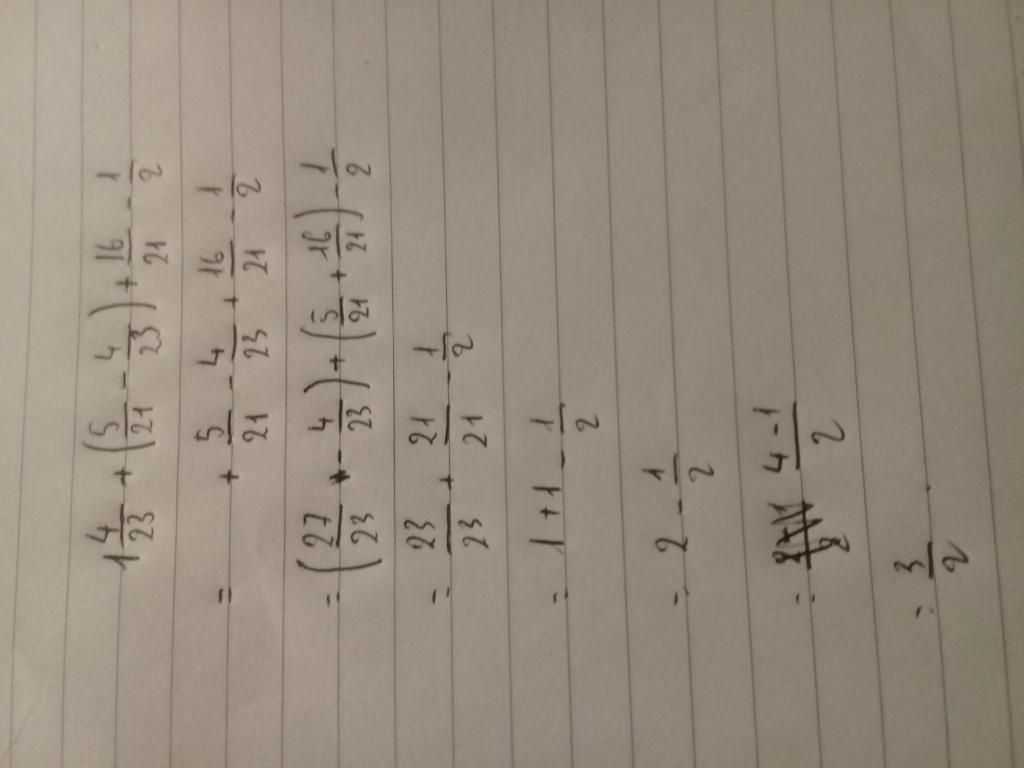 1 4/23 + (5/21 - 4/23) + 16/21 - 1/2
= + 5/21 - 4/23 + 16/21 - 1/2
= (27/23 - 4/23) + (5/21 + 16/21) - 1/2
= 23/23 + 21/21 - 1/2
= 1 + 1 - 1/2
= 2 - 1/2
= 4-1/2
= 3/2.